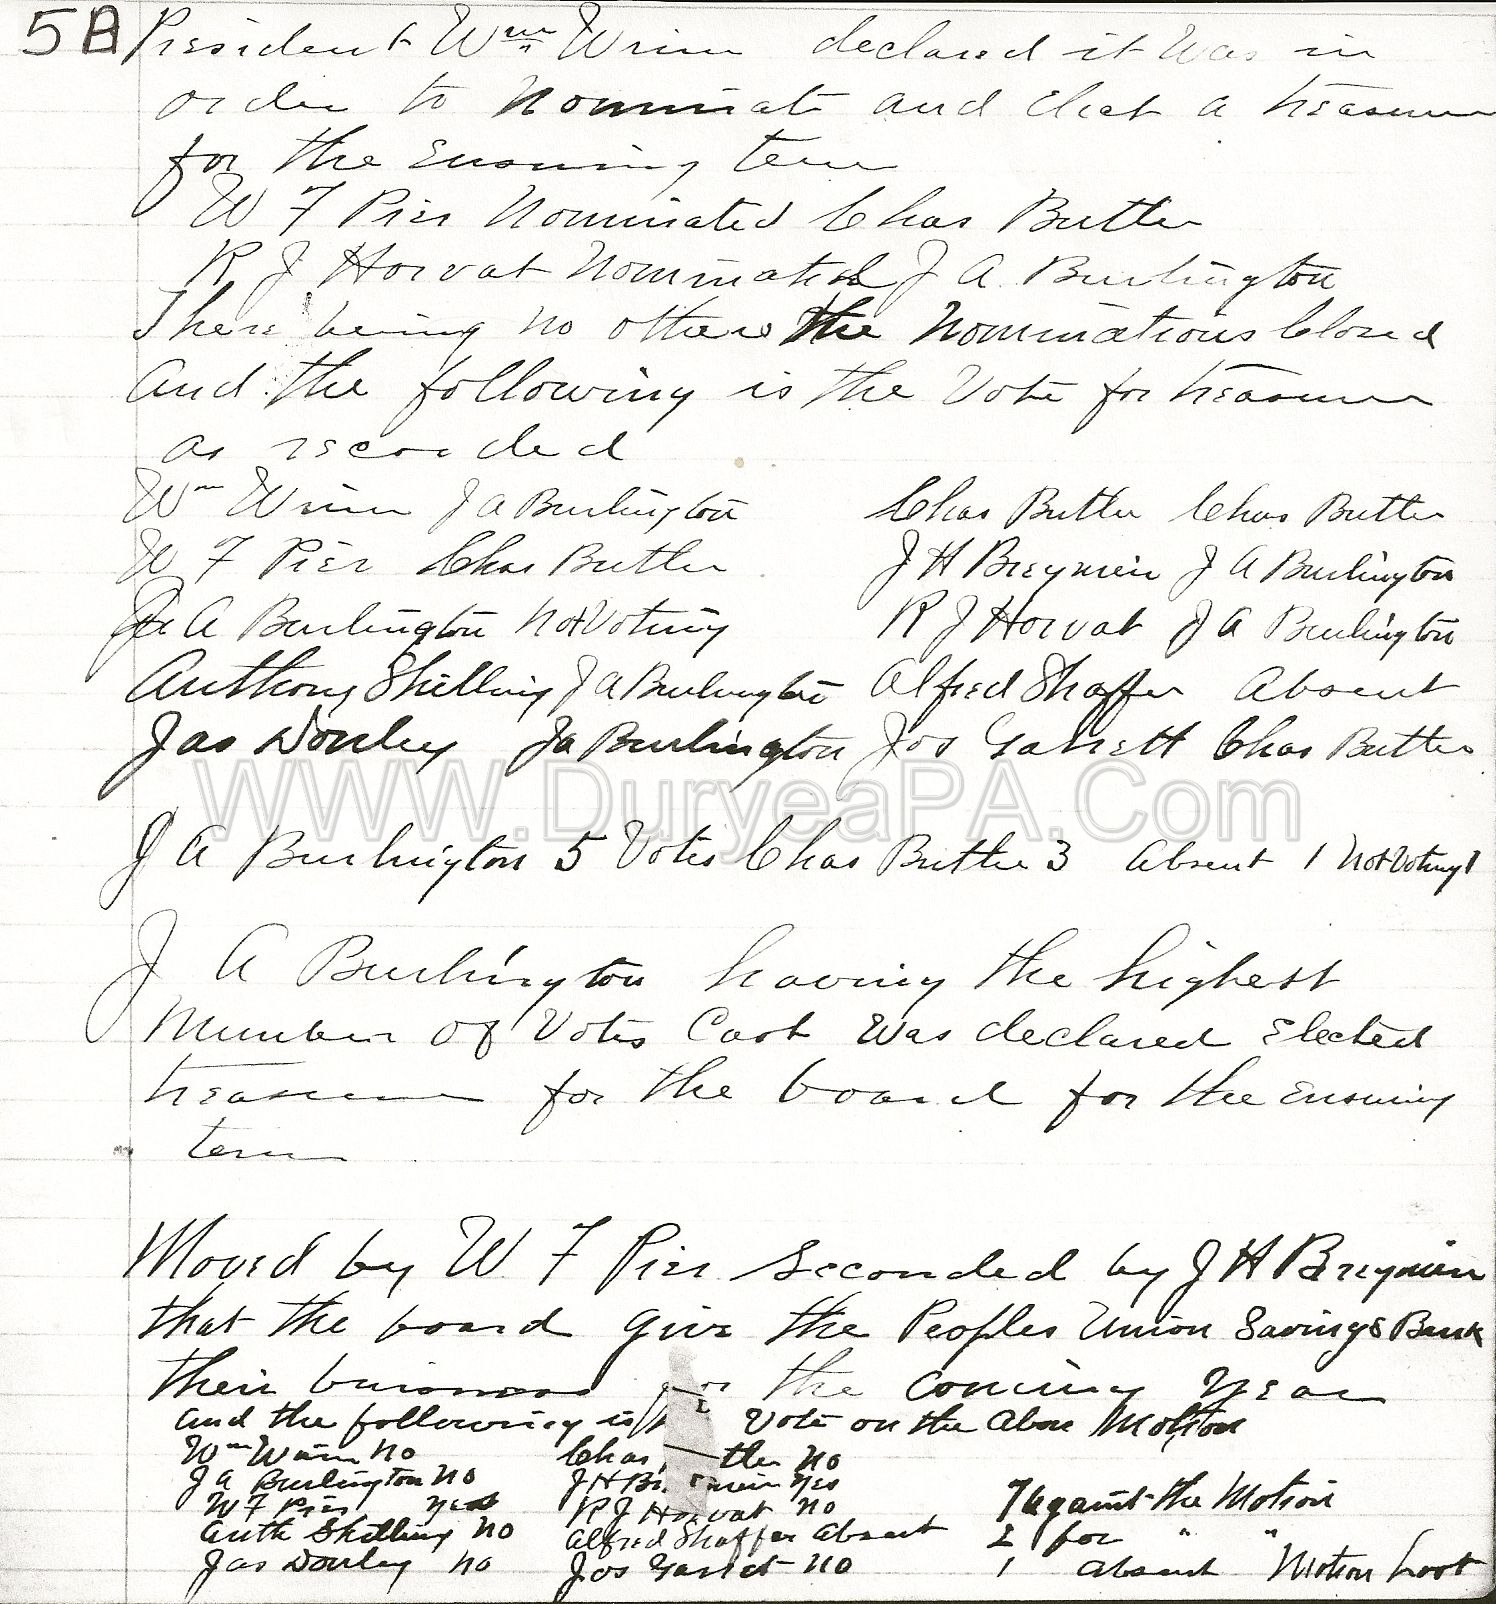 5B President Wm Winn declared it Was in
order to Nominate and Elect a treasurer
for the Ensuing term
W F Pier Nominated Chas Butler
R J Horvat Nominated J A Burlington
There being no others the Nominations Closed
And the following is the Vote for treasurer
as recorded
Wm Winn J A Burlington Chas Butler Chas Butler
W F Pier Chas Butler J H Breymeir J A Burlington
J A Burlington Not Voting R J Horvat J A Burlington
Anthony Shilling J A Burlington Alfred Shaffer Absent
Jas Donley J a Burlington Jos Garrett Chas Butler
WWW.DuryeaPA.Com
J A Burlington 5 Votes Chas Butler 3 Absent 1 Not Voting 1
J A Burlington having the highest
Number of Votes Cast Was declared Elected
treasurer for the board for the Ensuing
term
Moved by W F Pier Seconded by J H Breymeir
that the board give the Peoples Union Savings Bank
their business for the Coming Year
and the following is Vote on the Above Motion
Wm Winn no Chas tler no
J A Burlington no J H Br meir yes
W F Pier yes R J Horvat no 7 Against the Motion
Anth Shilling no Alfred Shaffer Absent 2 for " "
Jas Donley no Jos Garret no 1 Absent Motion Lost